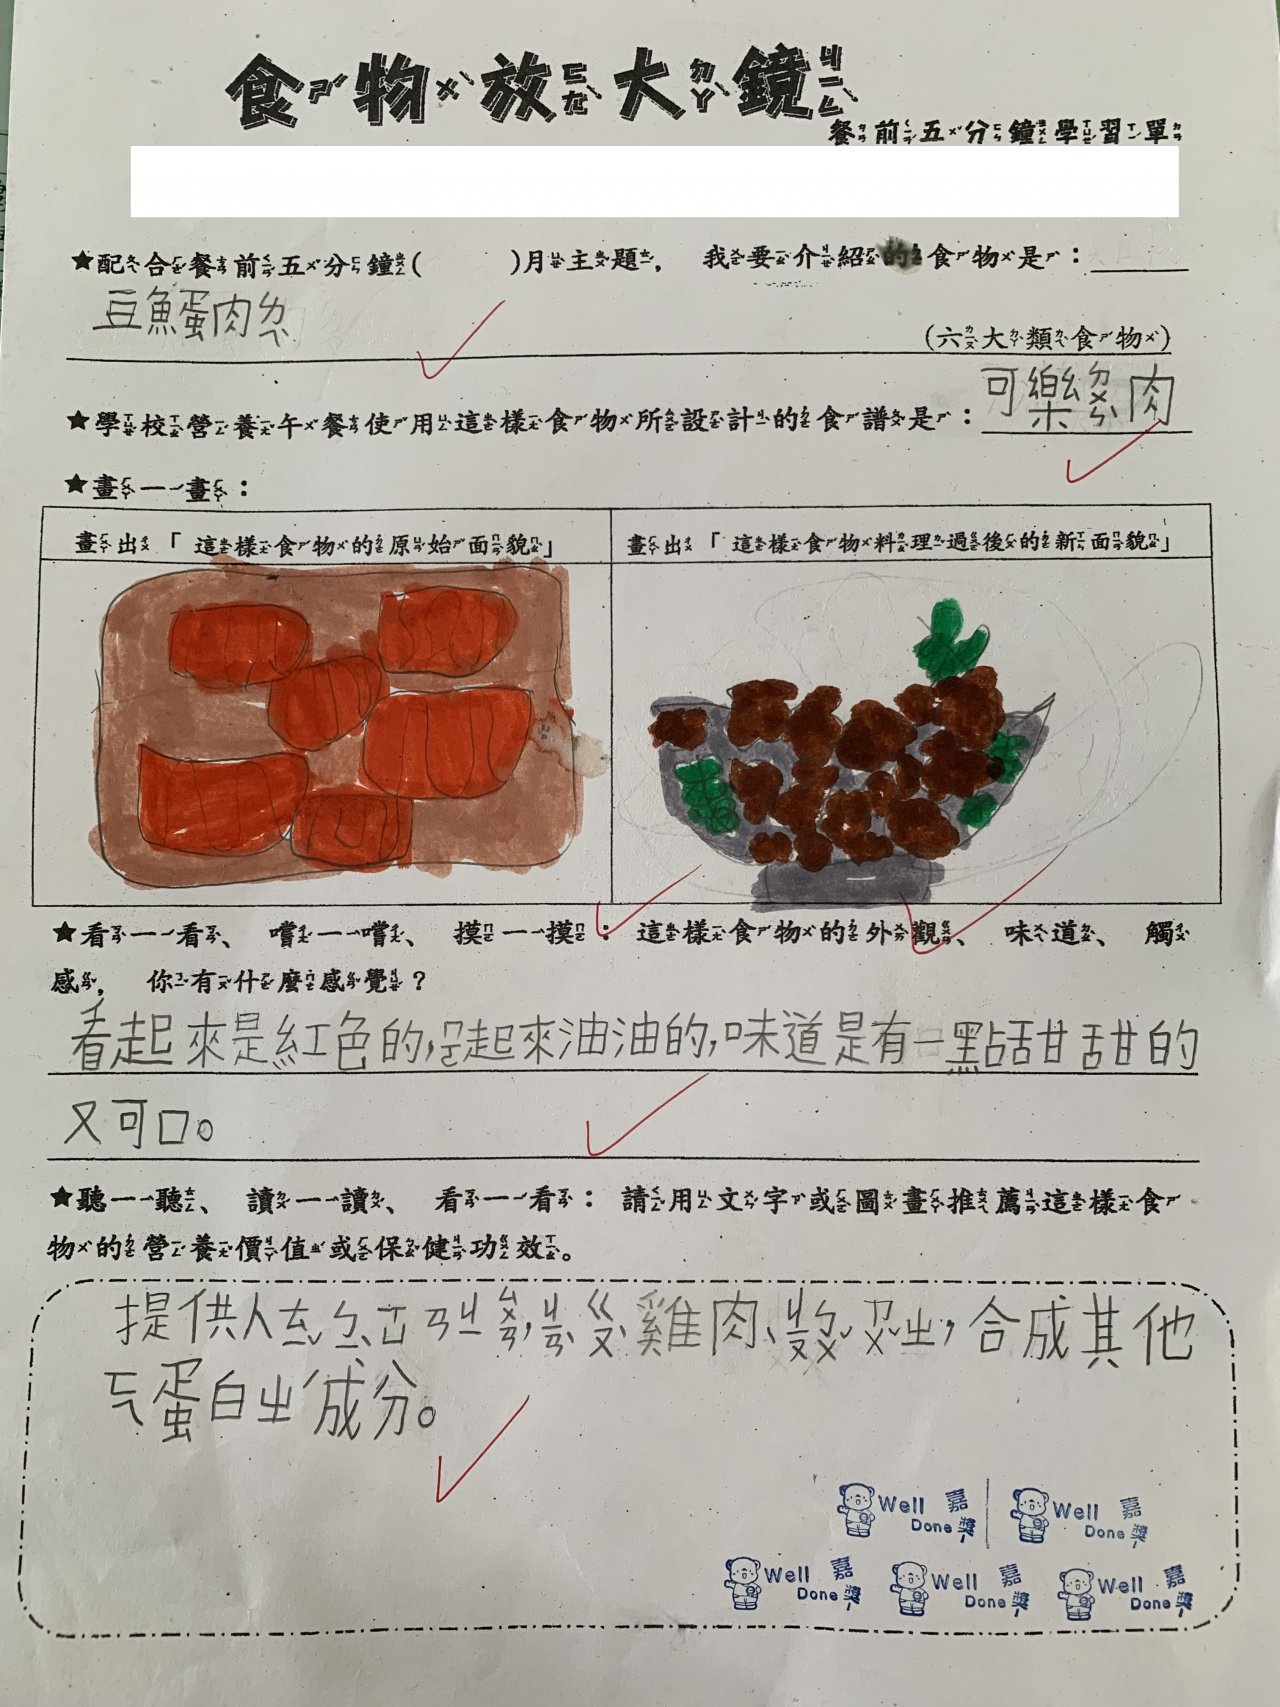 食ㄕˊ物ㄨˋ放ㄈㄤˋ大ㄉㄚˋ鏡ㄐㄧㄥˋ
餐前五分鐘學習單
★配合餐前五分鐘(　　)月主題，我要介紹的食物是：
豆魚蛋肉ㄌㄟˋ
(六大類食物)
★學校營養午餐使用這樣食物所設計的食譜是：可樂ㄉㄨㄣˋ肉
★畫一畫：
畫出「這樣食物的原始面貌」
畫出「這樣食物料理過後的新面貌」
★看一看、嚐一嚐、摸一摸：這樣食物的外觀、味道、觸
感，你有什麼感覺？
看起來是紅色的,ㄇㄛ起來油油的,味道是有一點甜甜的
又可口。
★聽一聽、讀一讀、看一看：請用文字或圖畫推薦這樣食
物的營養價值或保健功效。
提供人ㄊㄧˇ ㄅㄧˋ ㄒㄩ ㄢ ㄐㄧ ㄙㄨㄢ,ㄐㄧㄢˋ ㄍㄡˋ雞肉、
合成其他
ㄎˋ蛋白ㄓˊ成分。
Well Done 嘉獎
Well Done 嘉獎
Well Done 嘉獎
Well Done 嘉獎
Well Done 嘉獎